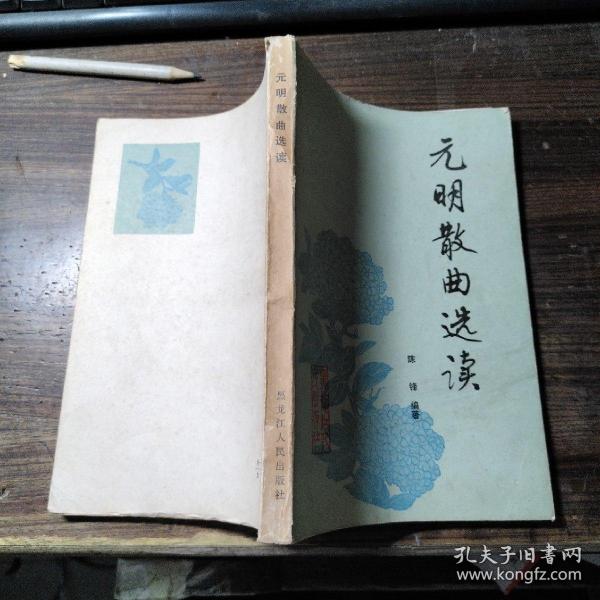 元明散曲选读
陈锋 编著
元明散曲选读
黑龙江人民出版社
孔夫子旧书网
www.kongfz.com